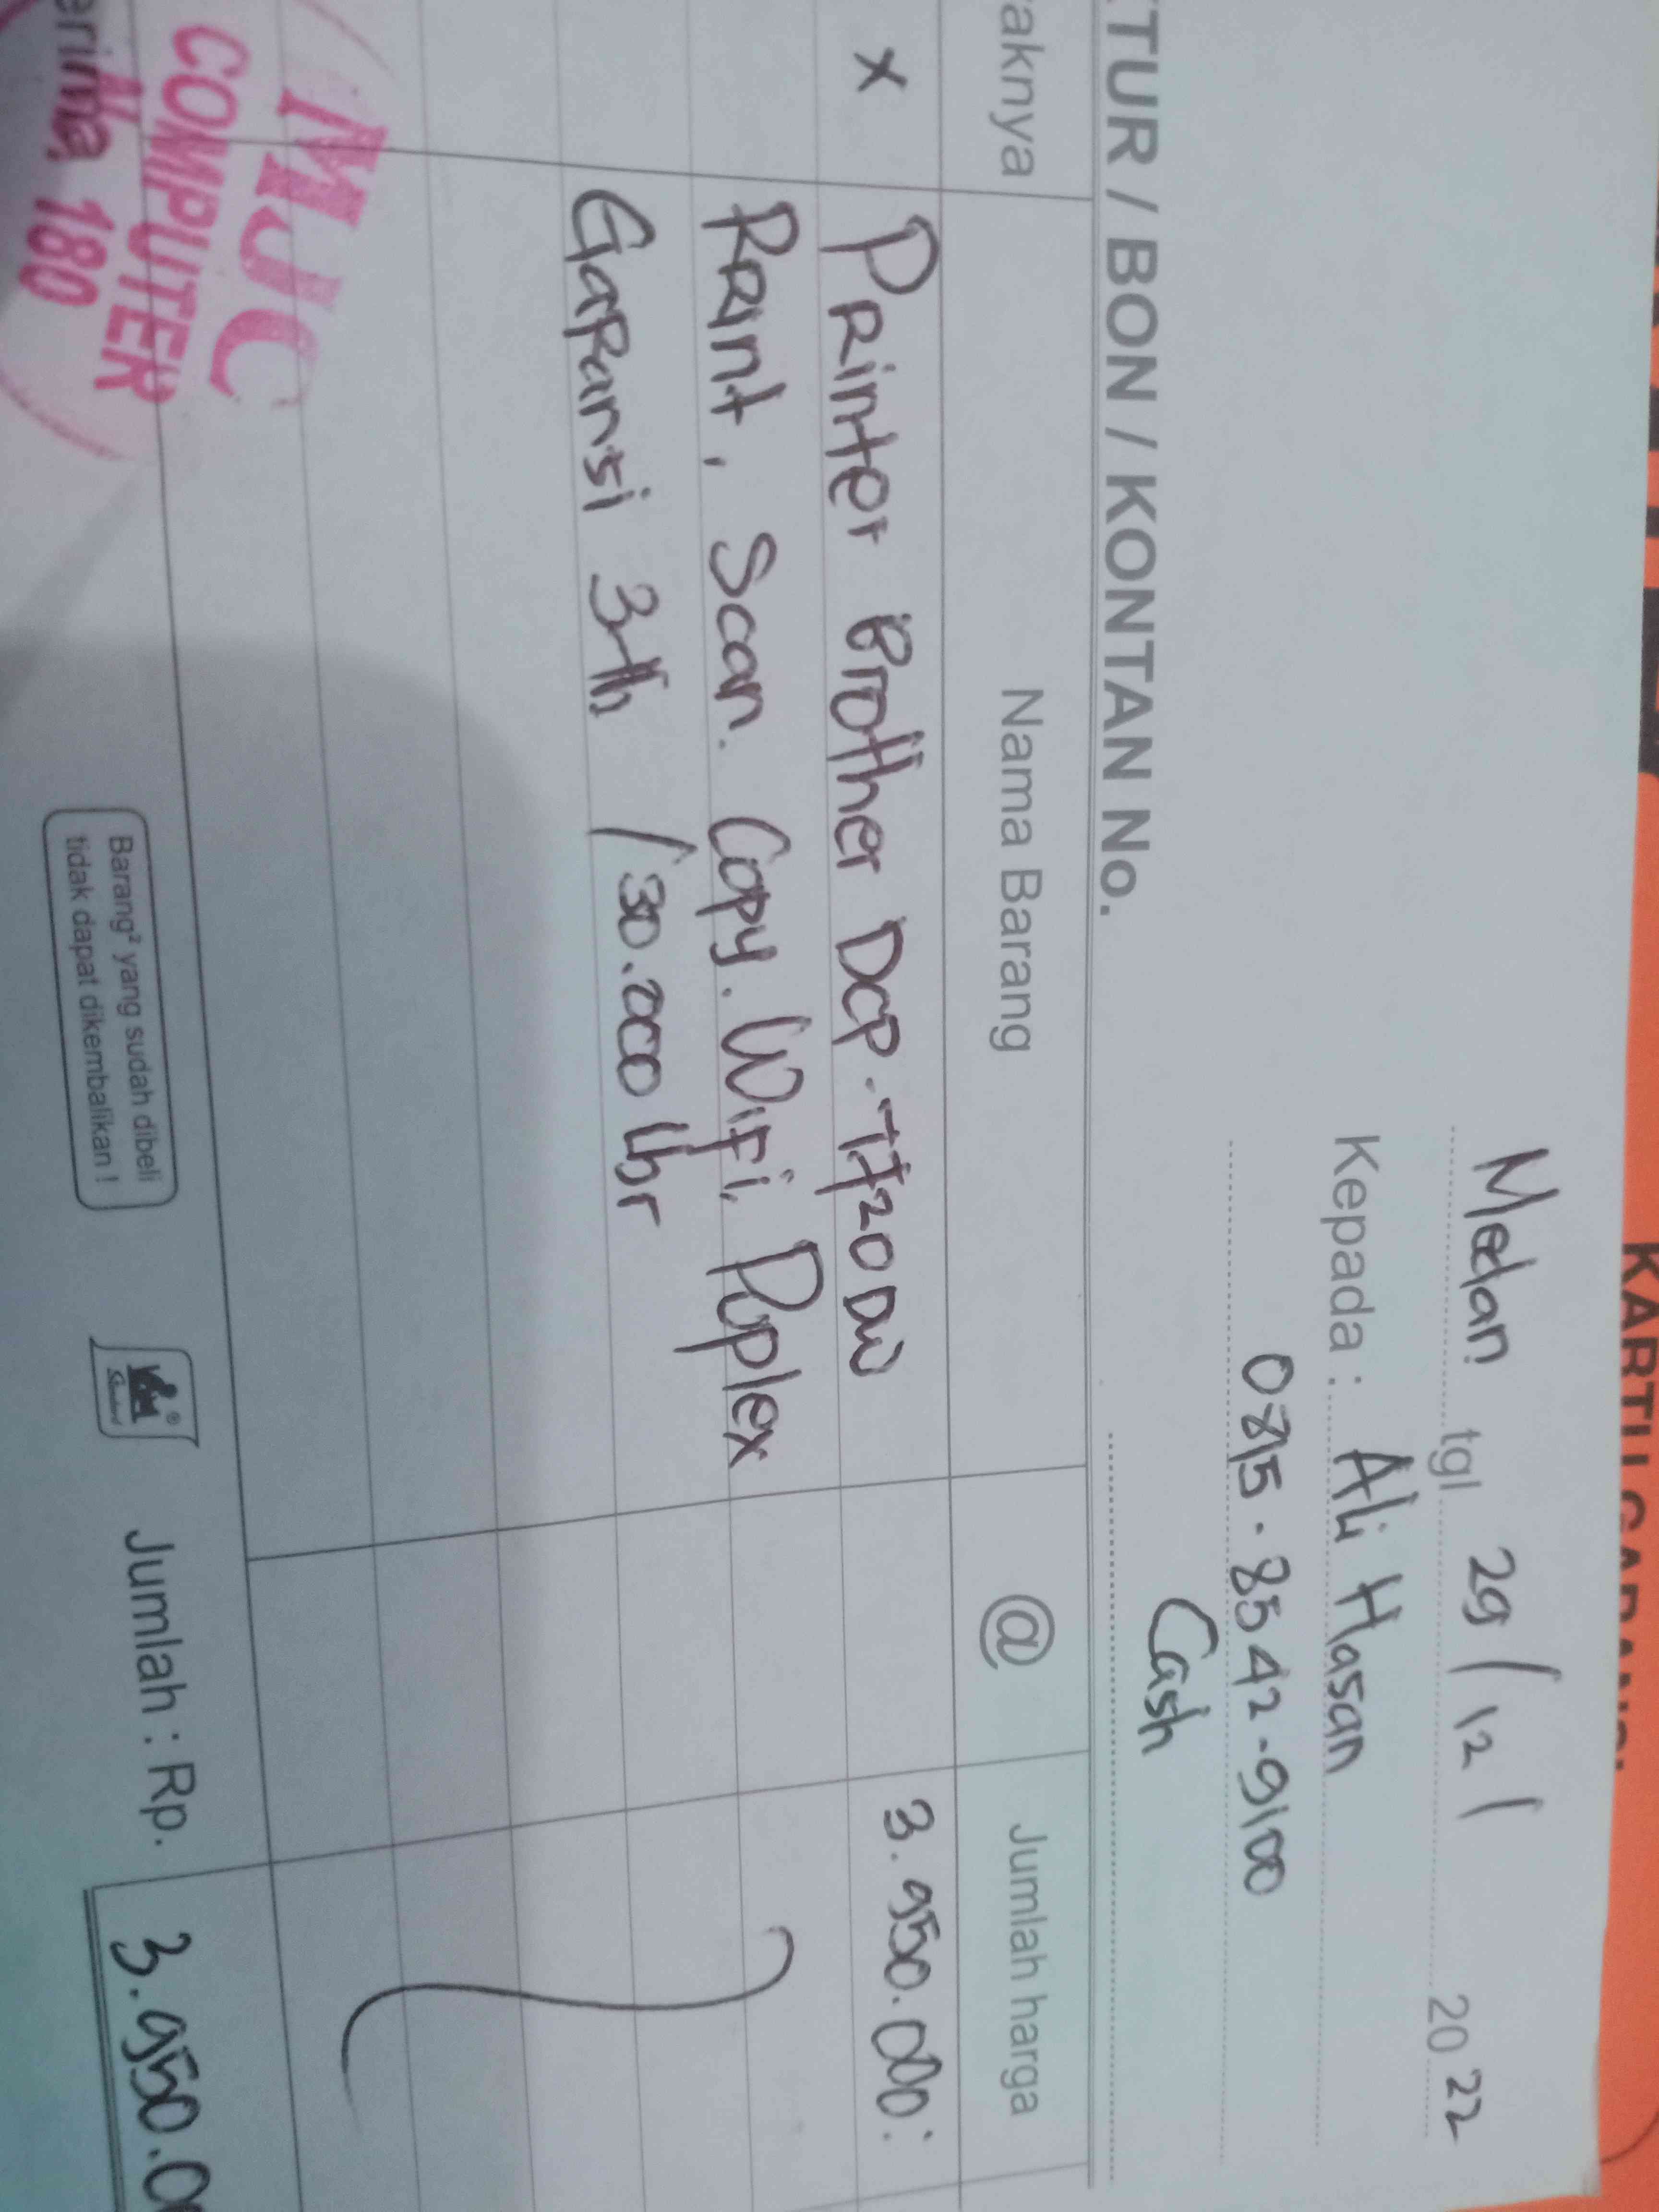 KARTU GARANSI
Medan tgl 29 / 12 / 2022
Kepada : Ali Hasan
0815 . 8542 - 9100
Cash
TUR / BON / KONTAN No.
aknya Nama Barang @ Jumlah harga
x Printer Brother DCP-T720DW 3.950.000:
Print, Scan. Copy. WiFi. Duplex
Garansi 3th / 30.000 lbr
MJC
COMPUTER
180
erima
Barang² yang sudah dibeli
tidak dapat dikembalikan !
Jumlah : Rp. 3.950.0